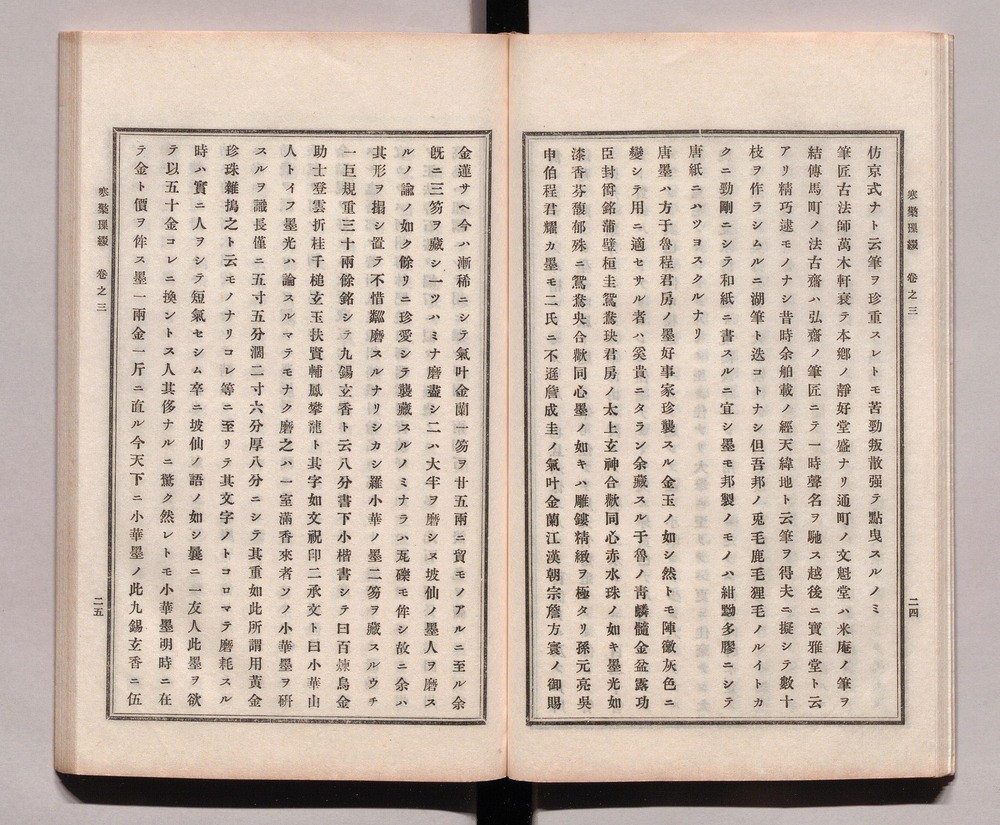 寒檠璅綴　卷之三
二四
仿京式ナト云筆ヲ珍重スレトモ苦勁叛散强テ點曳スルノミ
筆匠古法師萬木軒衰テ本鄉ノ靜好堂盛ナリ通町ノ文魁堂ハ米庵ノ筆ヲ
結傳馬町ノ法古齋ハ弘齋ノ筆匠ニテ一時聲名ヲ馳ス越後ニ寶雅堂ト云
アリ精巧逮モノナシ昔時余舶載ノ經天緯地ト云筆ヲ得夫ニ擬シテ數十
枝ヲ作ラシムルニ湖筆ト迭コトナシ但吾邦ノ兎毛鹿毛狸毛ノルイトカ
クニ勁剛ニシテ和紙ニ書スルニ宜シ墨モ邦製ノモノハ紺黝多膠ニシテ
唐紙ニハツヨスクルナリ
唐墨ハ方于魯程君房ノ墨好事家珍襲スル金玉ノ如シ然トモ陣黴灰色ニ
變シテ用ニ適セサル者ハ奚貴ニタラン余藏スル于魯ノ靑麟髓金盆露功
臣封爵銘蒲璧桓圭鴛鴦玦君房ノ太上玄神合歡同心赤水珠ノ如キ墨光如
漆香芬馥郁殊ニ鴛鴦央合歡同心墨ノ如キハ雕鏤精緻ヲ極タリ孫元亮吳
申伯程君耀カ墨モ二氏ニ不遜詹成圭ノ氣叶金蘭江漢朝宗詹方寰ノ御賜
金蓮サヘ今ハ漸稀ニシテ氣叶金蘭一笏ヲ廿五兩ニ貿モノアルニ至ル余
旣ニ三笏ヲ藏シ一ツハミナ磨盡シ二ハ大半ヲ磨シヌ坡仙ノ墨人ヲ磨ス
ルノ諭ノ如ク餘リニ珍愛シテ襲藏スルノミナラハ瓦礫モ侔シ故ニ余ハ
其形ヲ搨シ置テ不惜磨スルナリシカシ羅小華ノ墨二笏ヲ藏スルウチ
一巨規重三十兩餘銘シテ九錫玄香ト云八分書下小楷書シテ曰百煉烏金
助士登雲折桂千槌玄玉扶賢輔鳳攀龍ト其字如文祝印二承文ト曰小華山
人トイフ墨光ハ論スルマテモナク磨之ハ一室滿香來者ソノ小華墨ヲ硏
スルヲ識長僅ニ五寸五分濶二寸六分厚八分ニシテ其重如此所謂用黃金
珍珠雜搗之ト云モノナリコレ等ニ至リテ其文字ノトコロマテ磨耗スル
時ハ實ニ人ヲシテ短氣セシム卒ニ坡仙ノ語ノ如シ曩ニ一友人此墨ヲ欲
テ以五十金コレニ換ントス人其侈ナルニ驚ク然レトモ小華墨明時ニ在
テ金ト價ヲ侔ス墨一兩金一斤ニ直ル今天下ニ小華墨ノ此九錫玄香ニ伍
寒檠璅綴　卷之三
二五